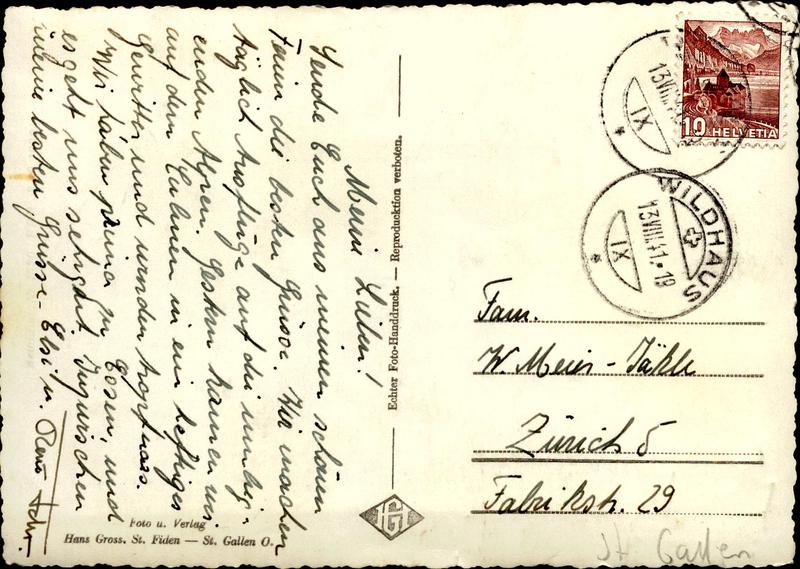 Meine Lieben!
Sende Euch aus meinen schönen
Ferien die besten Grüsse. Wir machen
täglich Ausflüge auf die umlieg-
enden Alpen. Gestern kamen wir
auf dem Culmen in ein heftiges
Gewitter und wurden tropfnass.
Wir haben prima zu Essen, und
es geht uns sehr gut. Inzwischen
meine besten Grüsse - Elsi u.
Echter Foto-Handdruck. — Reproduktion verboten.
Foto u. Verlag
Hans Gross. St. Fiden — St. Gallen O.
10 HELVETIA
13 VIII
XI
WILDHAUS
13 VIII 41 - 19
IX
Fam.
W. Meier - Jäkle
Zürich 5
Fabrikstr. 29
St Gallen